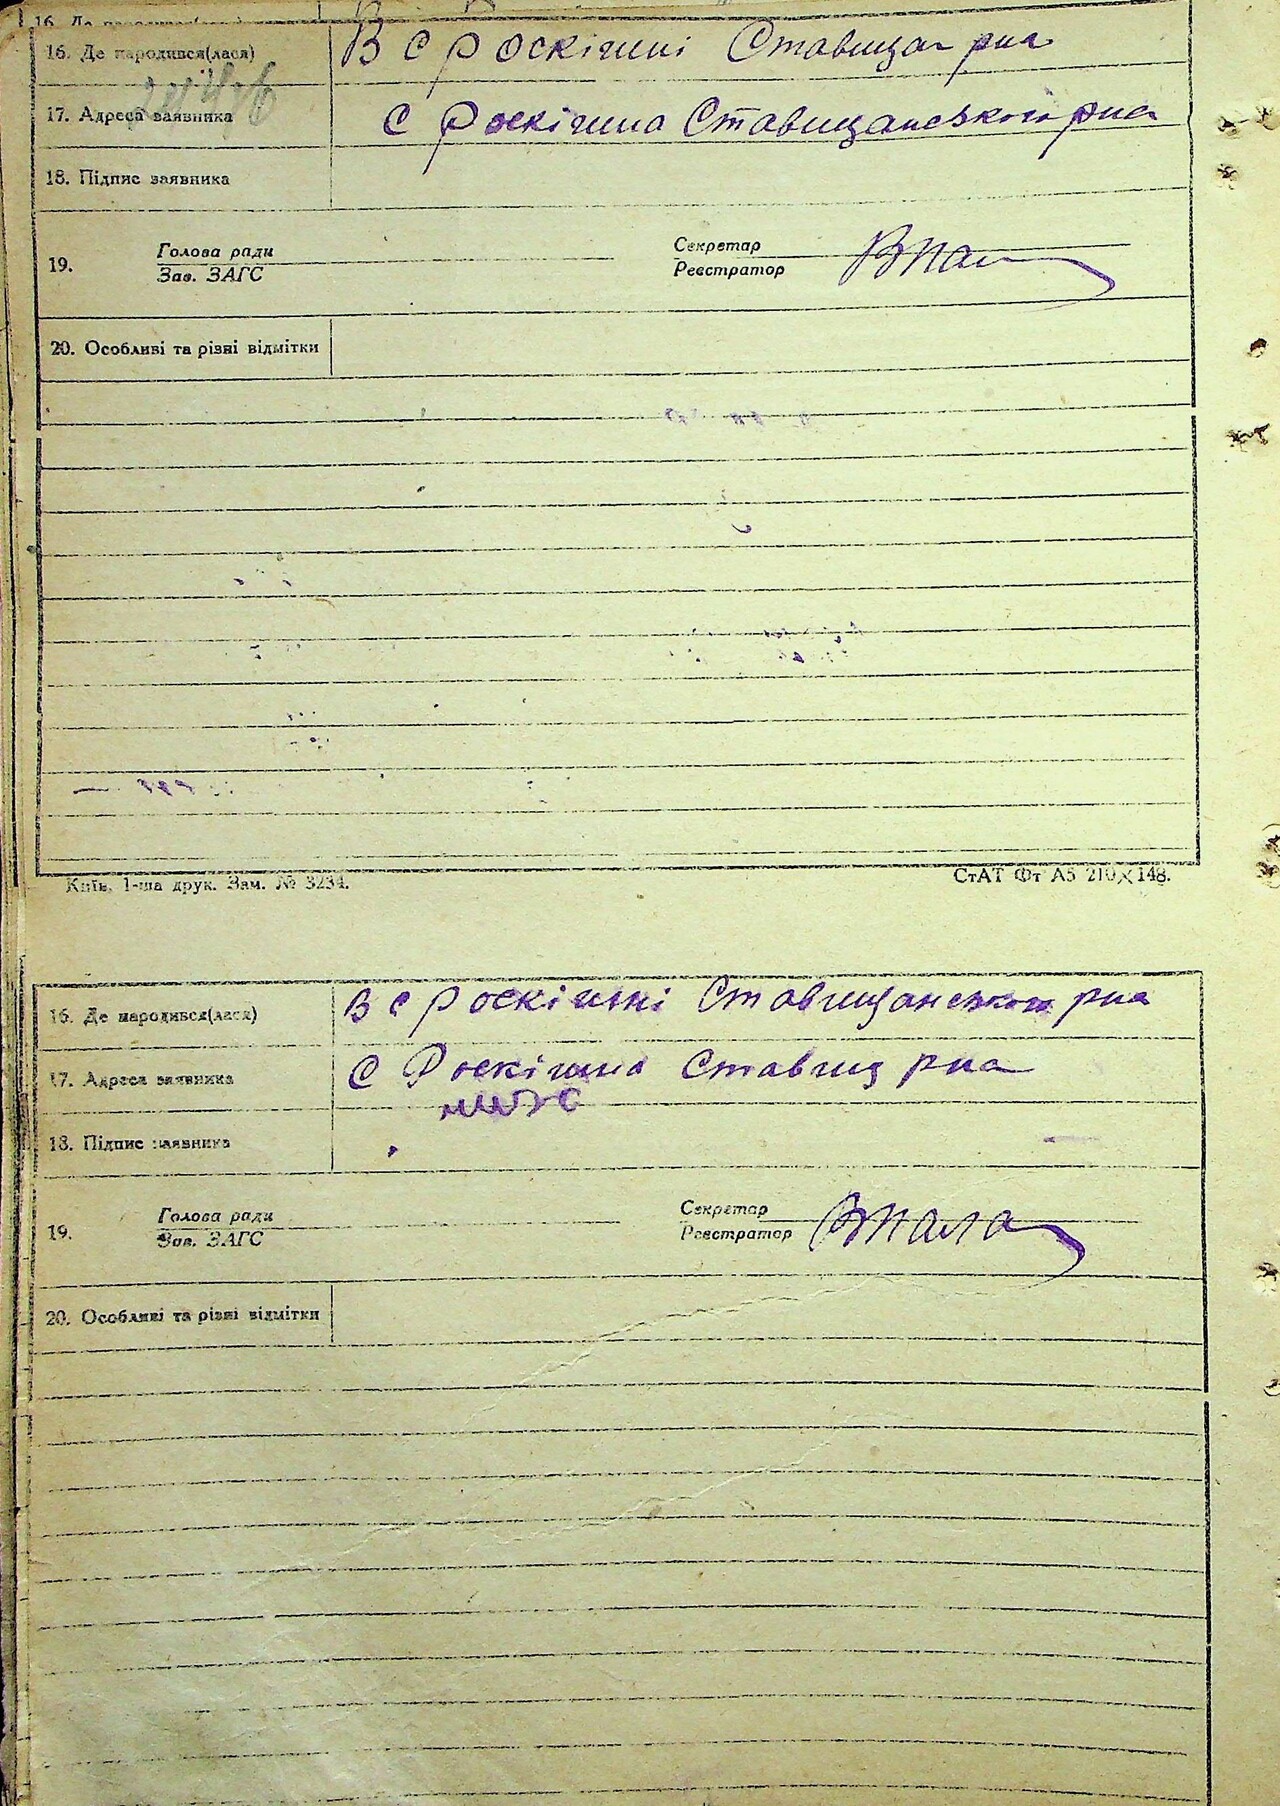 16. Де народився(лася) В с Роскішні Ставищан рна
17. Адреса заявника с Роскішна Ставищанського рна
18. Підпис заявника
19. Голова ради Секретар
Зав. ЗАГС Реєстратор
20. Особливі та різні відмітки
Київ, 1-ша друк. Зам. № 3234. СтАТ Фт А5 210×148.
16. Де народився(лася) в с Роскішні Ставищанського рна
17. Адреса заявника с Роскішна Ставищ рна
18. Підпис заявника
19. Голова ради Секретар
Зав. ЗАГС Реєстратор
20. Особливі та різні відмітки